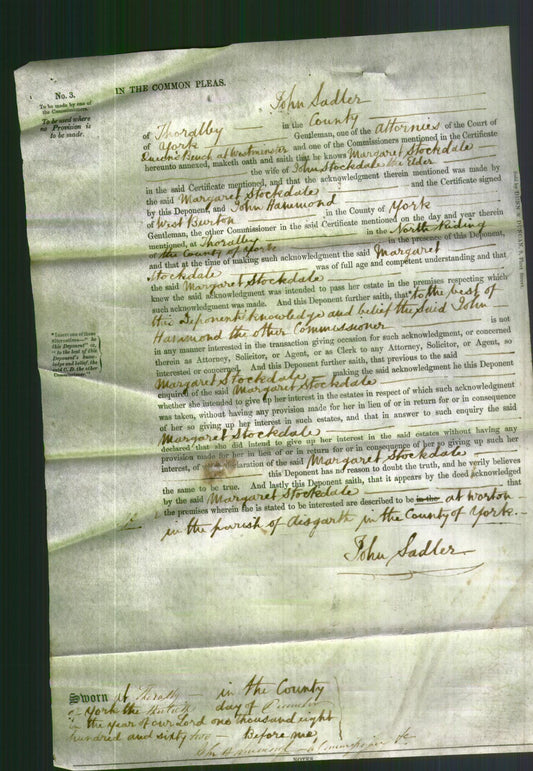 No. 3.
To be made by one of
the Commissioners.
To be used where
no Provision is
to be made.
IN THE COMMON PLEAS.
John Sadler
of Thoralby in the County
of York Gentleman, one of the Attornies of the Court of
Queen's Bench at Westminster and one of the Commissioners mentioned in the Certificate
hereunto annexed, maketh oath and saith that he knows Margaret Stockdale
the wife of John Stockdale the Elder
in the said Certificate mentioned, and that the acknowledgment therein mentioned was made by
the said Margaret Stockdale and the Certificate signed
by this Deponent, and John Hammond
of West Burton in the County of York
Gentleman, the other Commissioner in the said Certificate mentioned on the day and year therein
mentioned, at Thoralby in the North Riding
of the County of York in the presence of this Deponent,
and that at the time of making such acknowledgment the said Margaret
Stockdale was of full age and competent understanding and that
the said Margaret Stockdale
knew the said acknowledgment was intended to pass her estate in the premises respecting which
such acknowledgment was made. And this Deponent further saith, that to the best of
this Deponent's knowledge and belief the said John
Hammond the other Commissioner is not
in any manner interested in the transaction giving occasion for such acknowledgment, or concerned
therein as Attorney, Solicitor, or Agent, or as Clerk to any Attorney, Solicitor, or Agent, so
interested or concerned. And this Deponent further saith, that previous to the said
Margaret Stockdale making the said acknowledgment he this Deponent
enquired of the said Margaret Stockdale
whether she intended to give up her interest in the estates in respect of which such acknowledgment
was taken, without having any provision made for her in lieu of or in return for or in consequence
of her so giving up her interest in such estates, and that in answer to such enquiry the said
Margaret Stockdale
declared that she did intend to give up her interest in the said estates without having any
provision made for her in lieu of or in return for or in consequence of her so giving up such her
interest, of declaration of the said Margaret Stockdale
this Deponent has no reason to doubt the truth, and he verily believes
the same to be true. And lastly this Deponent saith, that it appears by the deed acknowledged
by the said Margaret Stockdale that
the premises wherein she is stated to be interested are described to be in the at Worton
in the parish of Aisgarth in the County of York.
John Sadler
"Insert one of these
this Deponent" or,
"to the best of this
Deponent's know-
ledge and belief, the
said C. D. the other
Commissioner."
Sworn at Thoralby in the County
of York the day of December
in the year of our Lord one thousand eight
hundred and sixty two Before me,
NOTES